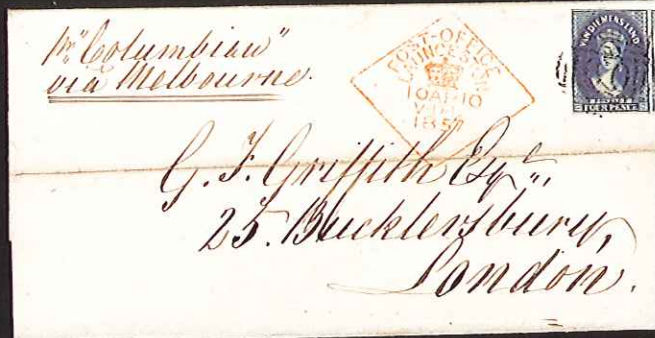 pr "Columbian"
via Melbourne.
POST-OFFICE
LAUNCESTON
10 AP 10
V.D.L
1857
VAN DIEMENS LAND
POSTAGE
FOUR PENCE
G. F. Griffith Esqr.,
25. Bucklersbury,
London.